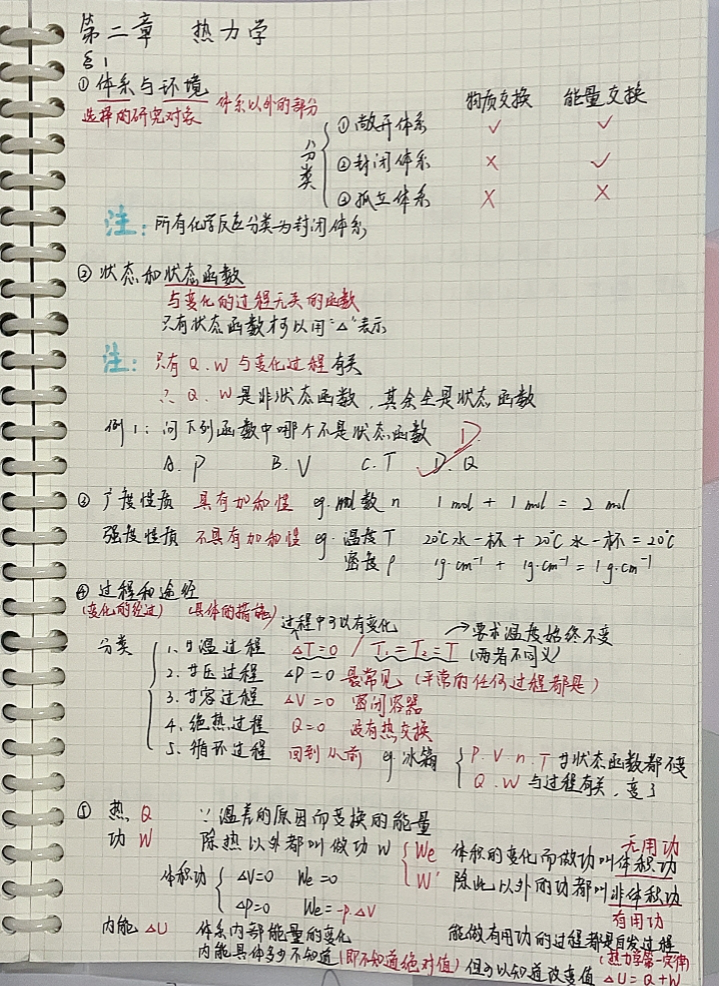 第二章 热力学
§1
① 体系与环境 体系以外的部分
选择的研究对象
物质交换 能量交换
分类
① 敞开体系 ✓ ✓
② 封闭体系 × ✓
③ 孤立体系 × ×
注: 所有化学反应分类为封闭体系
② 状态和状态函数
与变化的过程无关的函数
只有状态函数才可以用"△"表示
注: 只有 Q、W 与变化过程有关
∴ Q、W 是非状态函数，其余全是状态函数
例1: 问下列函数中哪个不是状态函数 D
A. P B. V C. T D. Q
③ 广度性质 具有加和性 eg. mol数 n 1 mol + 1 mol = 2 mol
强度性质 不具有加和性 eg. 温度 T 20℃水一杯 + 20℃水一杯 = 20℃
密度 ρ 1g·cm⁻¹ + 1g·cm⁻¹ = 1g·cm⁻¹
④ 过程和途径
(变化的经过) (具体的措施) 过程中可以有变化
→要求温度始终不变
分类 1. 廿温过程 △T=0 / T₁=T₂=T (两者不同义)
2. 廿压过程 △P=0 最常见 (平常的任何过程都是)
3. 廿容过程 △V=0 密闭容器
4. 绝热过程 Q=0 没有热交换
5. 循环过程 回到从前 eg 冰箱 P、V、n、T 廿状态函数都不变
Q、W 与过程有关，变了
⑤ 热 Q ∵温差的原因而变换的能量
功 W 除热以外都叫做功 W We 体积的变化而做功叫体积功 无用功
W' 除此以外的功都叫非体积功
有用功
体积功 △V=0 We=0
△P=0 We=-P△V
内能 △U 体系内部能量的变化 能做有用功的过程都是自发过程
内能具体多少不知道(即不知道绝对值)但可以知道改变值 △U=Q+W
(热力学第一定律)